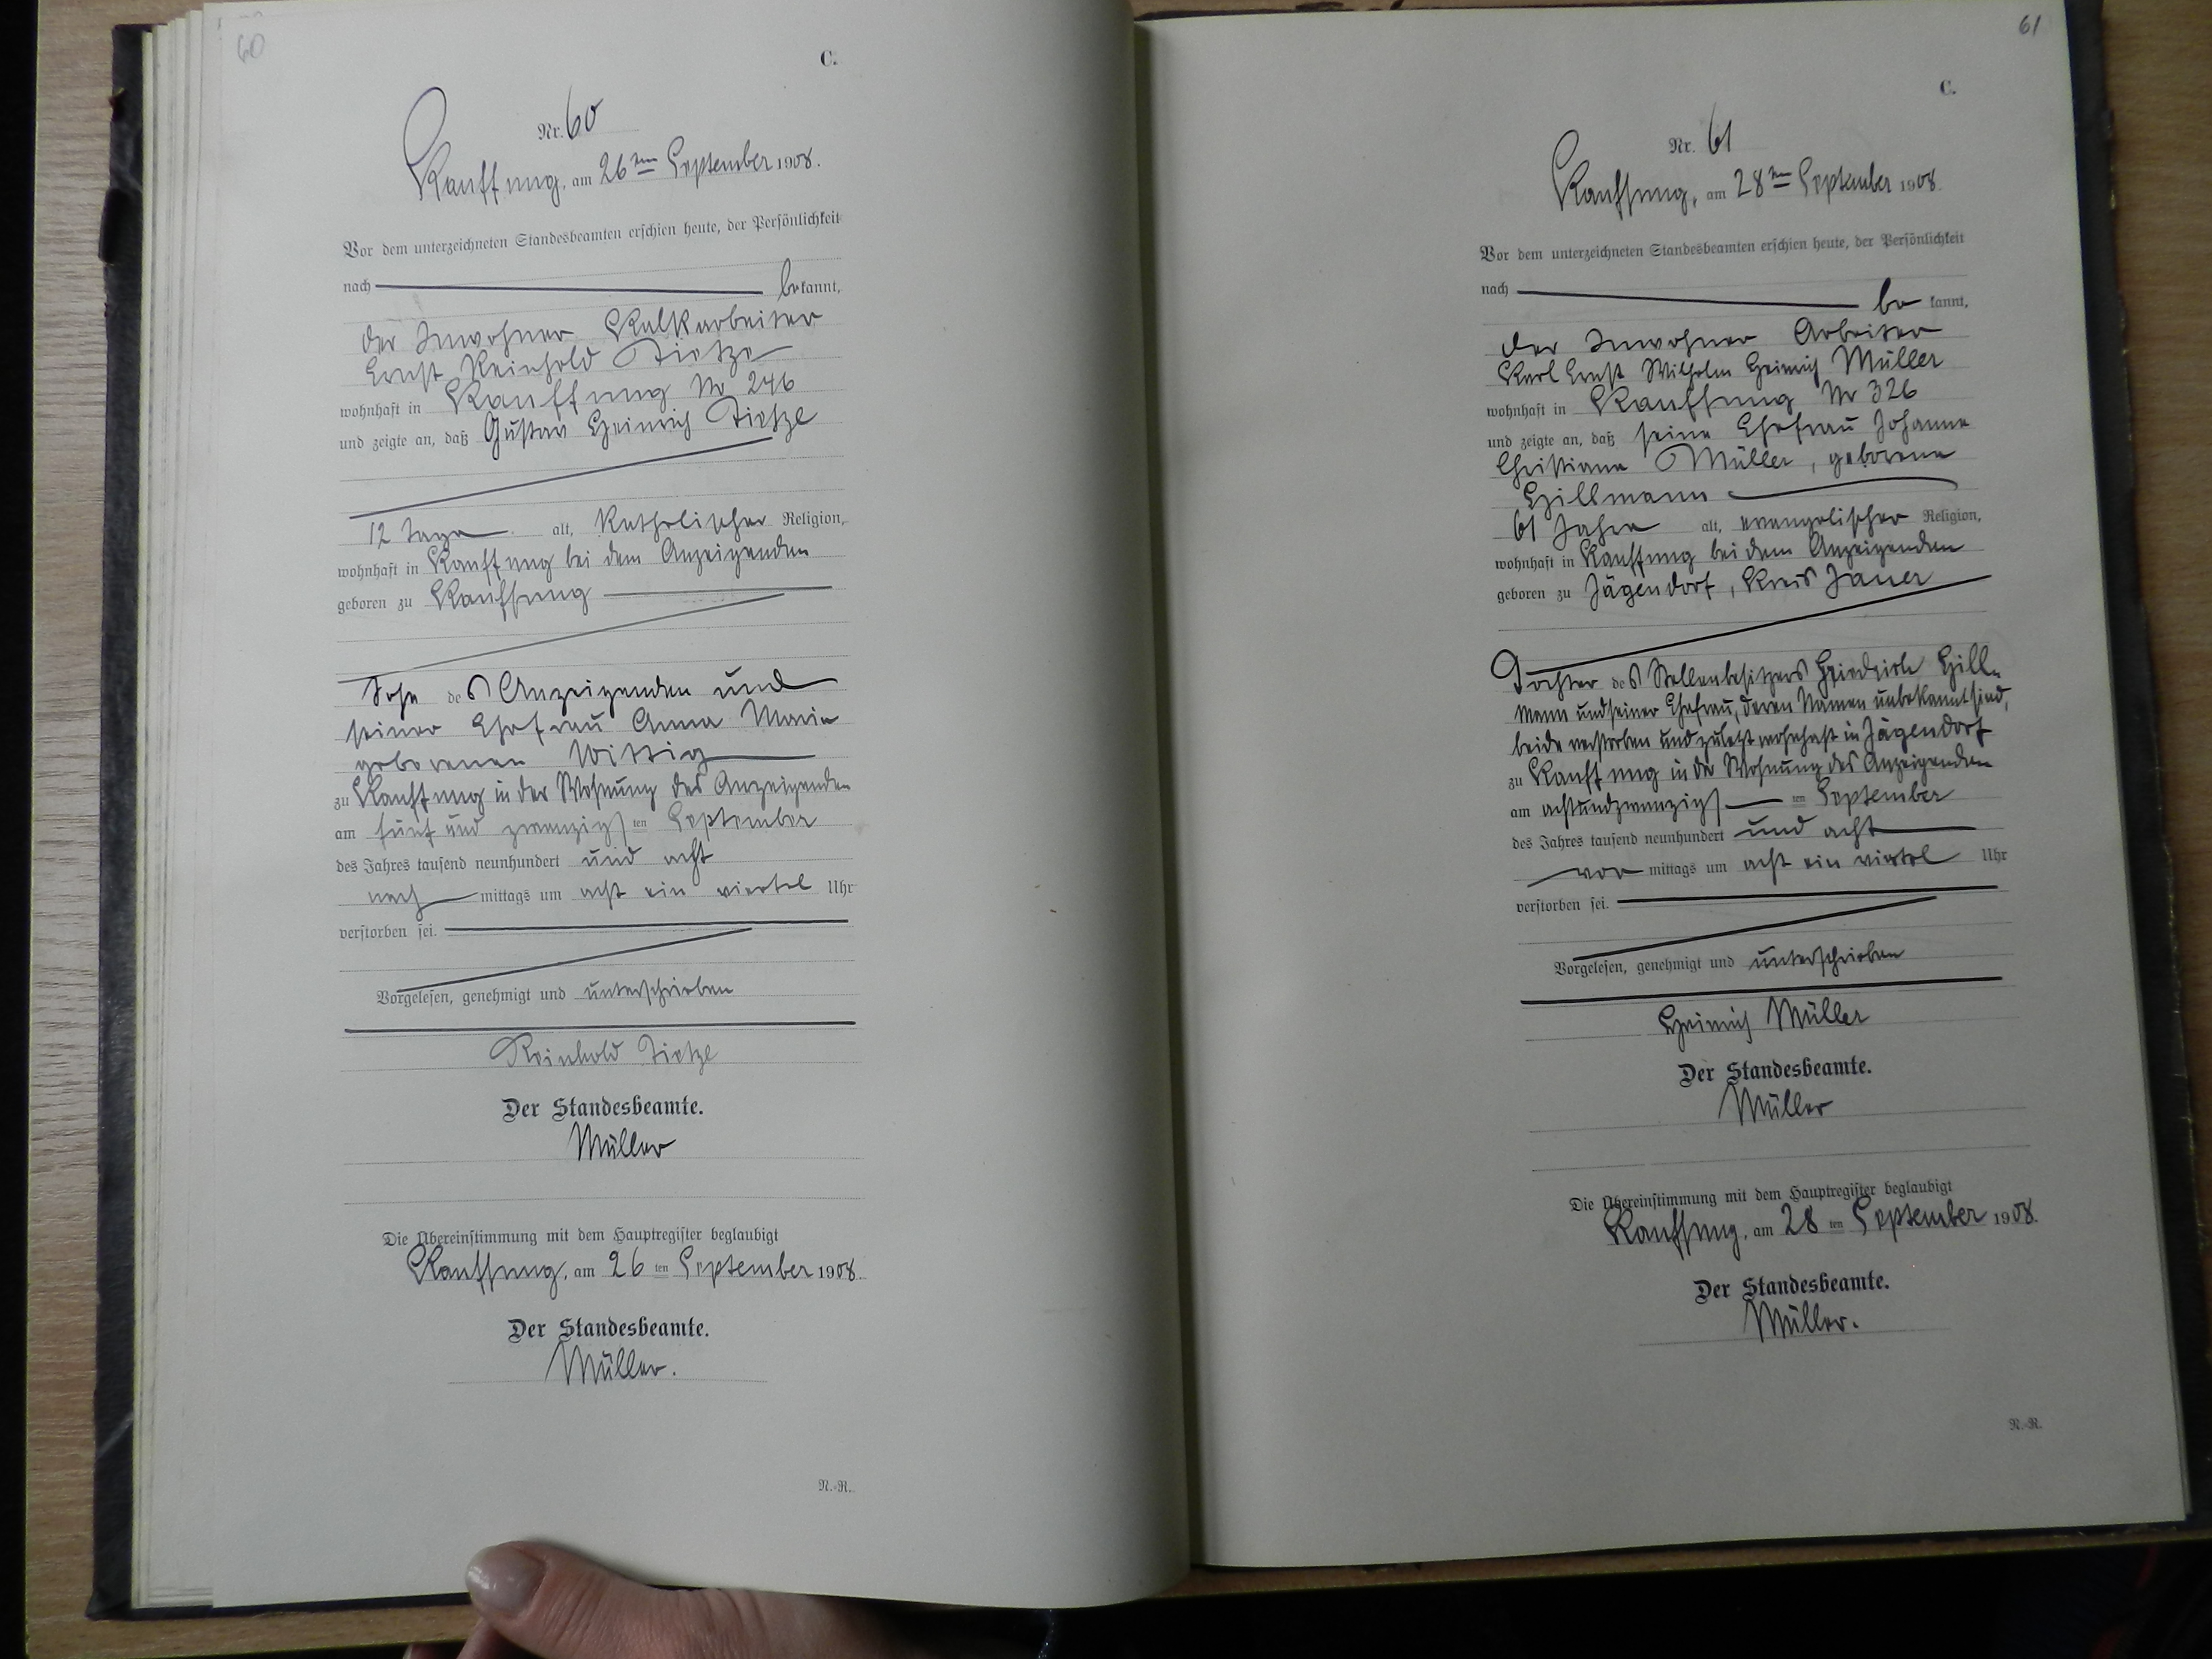 60
C.
Nr. 60
Kauffung, am 26ten September 1908.
Vor dem unterzeichneten Standesbeamten erschien heute, der Persönlichkeit
nach bekannt,
der Inwohner Kalkarbeiter
Ernst Reinhold Tietze
wohnhaft in Kauffung Nr 246
und zeigte an, daß Gustav Heinrich Tietze
12 Tage alt, katholischer Religion,
wohnhaft in Kauffung bei dem Anzeigenden
geboren zu Kauffung
Sohn des Anzeigenden und
seiner Ehefrau Anna Marie
geborenen Wittig
zu Kauffung in der Wohnung des Anzeigenden
am fünf und zwanzigsten September
des Jahres tausend neunhundert und acht
nachmittags um acht ein viertel Uhr
verstorben sei.
Vorgelesen, genehmigt und unterschrieben
Reinhold Tietze
Der Standesbeamte.
Müller
Die Übereinstimmung mit dem Hauptregister beglaubigt
Kauffung, am 26ten September 1908.
Der Standesbeamte.
Müller.
N.-R.
61
C.
Nr. 61
Kauffung, am 28ten September 1908.
Vor dem unterzeichneten Standesbeamten erschien heute, der Persönlichkeit
nach bekannt,
der Inwohner Arbeiter
Karl Ernst Wilhelm Heinrich Müller
wohnhaft in Kauffung Nr 326
und zeigte an, daß seine Ehefrau Johanne
Christiane Müller, geborene
Hillmann
61 Jahre alt, evangelischer Religion,
wohnhaft in Kauffung bei dem Anzeigenden
geboren zu Jägendorf, Kreis Jauer
Tochter des Stellenbesitzers Friedrich Hill-
mann und seiner Ehefrau, deren Namen unbekannt sind,
beide verstorben und zuletzt wohnhaft in Jägendorf
zu Kauffung in der Wohnung des Anzeigenden
am achtundzwanzigsten September
des Jahres tausend neunhundert und acht
vormittags um acht ein viertel Uhr
verstorben sei.
Vorgelesen, genehmigt und unterschrieben
Heinrich Müller
Der Standesbeamte.
Müller
Die Übereinstimmung mit dem Hauptregister beglaubigt
Kauffung, am 28ten September 1908.
Der Standesbeamte.
Müller.
N.-R.